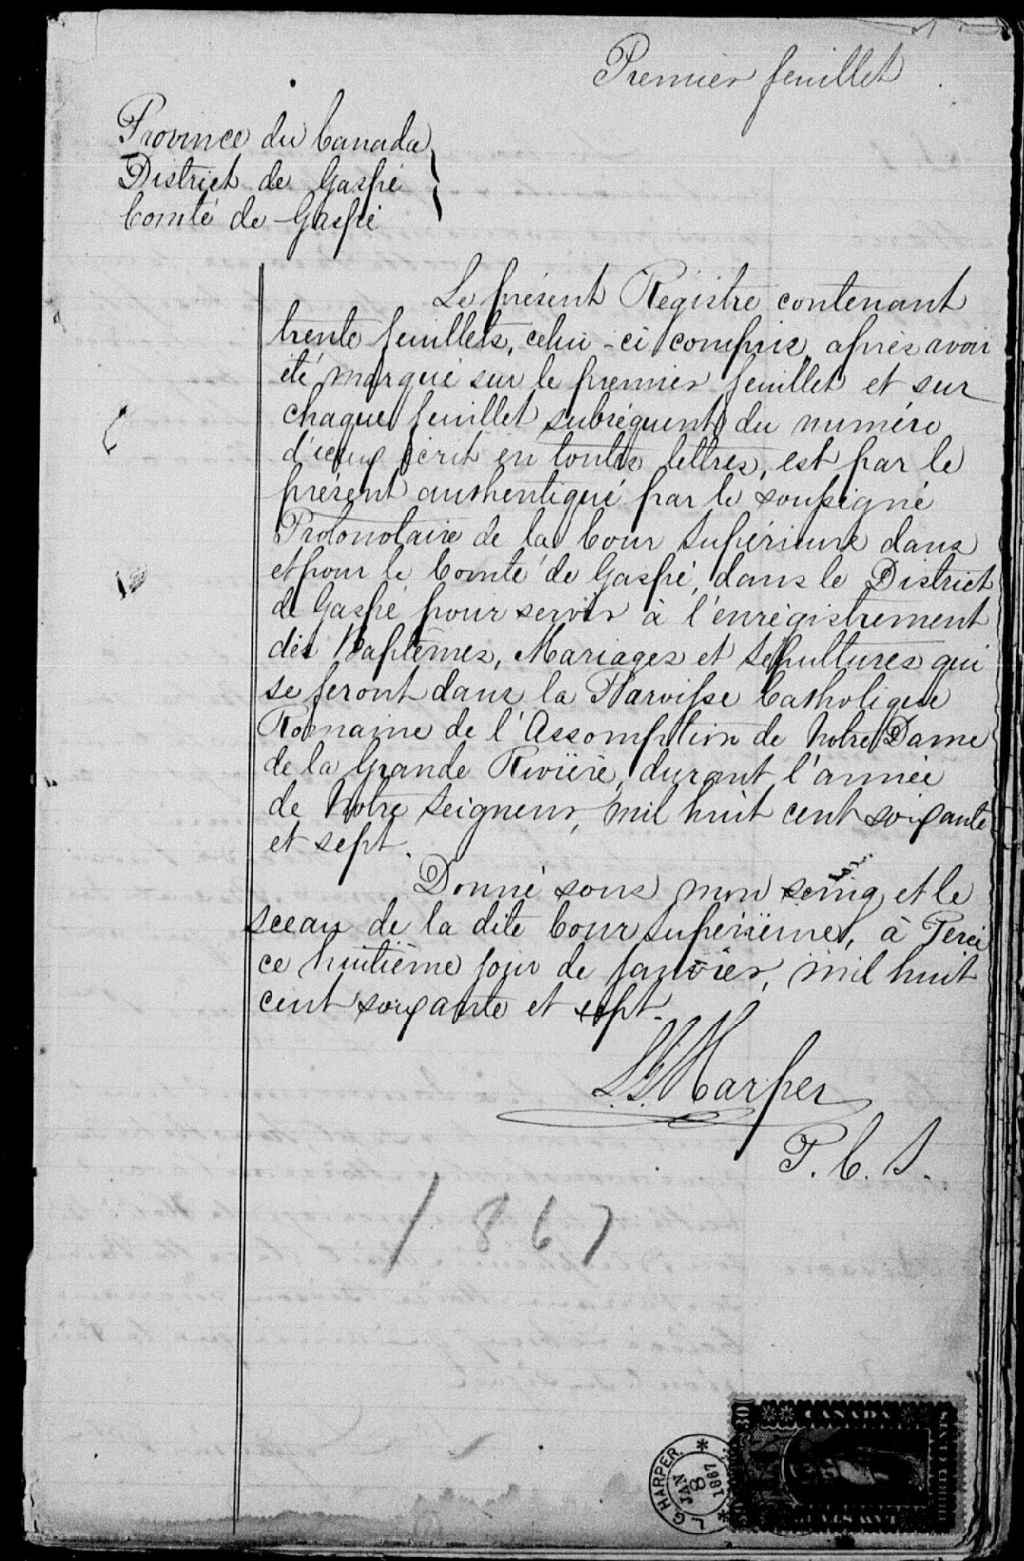 Premier feuillet
Province du Canada
District de Gaspé
Comté de Gaspé
Le présent Régistre contenant
trente feuillets, celui-ci compris, après avoir
été marqué sur le premier feuillet et sur
chaque feuillet subséquent du numéro
d'iceux écrit en toutes lettres, est par le
présent authentiqué par le soussigné
Protonotaire de la Cour Supérieure dans
et pour le Comté de Gaspé, dans le District
de Gaspé pour servir à l'enrégistrement
des Baptêmes, Mariages et Sépultures qui
se feront dans la Paroisse Catholique
Romaine de l'Assomption de Notre Dame
de la Grande Rivière, durant l'année
de Notre Seigneur, mil huit cent soixante
et sept.
Donné sous mon seing et le
sceau de la dite Cour Supérieure, à Percé
ce huitième jour de Janvier, mil huit
cent soixante et sept.
L.G. Harper
P. C. S.
1867
L. G. HARPER.
JAN
8
1867
CANADA
30
THIRTY CENTS
LAW STAMP